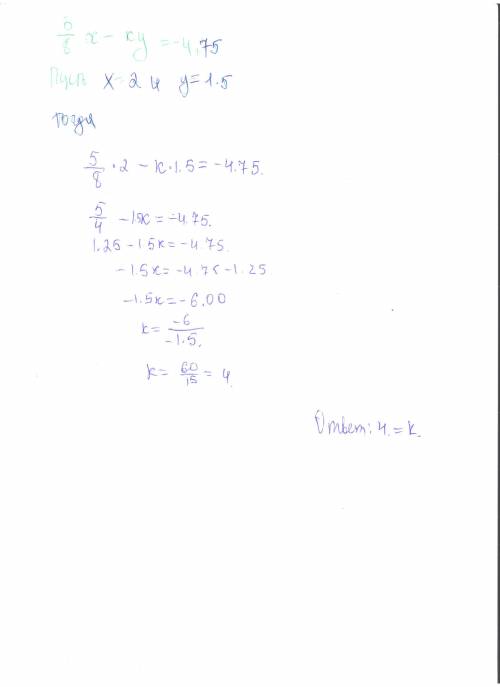 5/8 x - ку = -4,75
Пусть x = 2 и y = 1.5
тогда
5/8 · 2 - к · 1.5 = -4.75.
5/4 - 1.5к = -4.75.
1.25 - 1.5к = -4.75.
-1.5к = -4.75 - 1.25
-1.5к = -6.00
к = -6/-1.5.
к = 60/15 = 4.
Ответ: 4. = к.